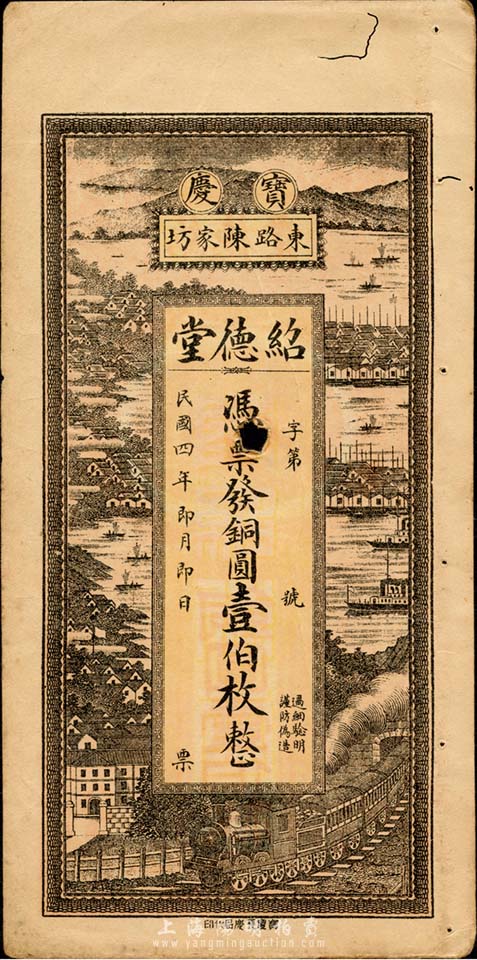 寶慶
東路陳家坊
紹德堂
字第 號
憑票發銅圓壹伯枚整
過細驗明
謹防偽造
民國四年即月即日 票
上海陽明拍賣
www.yangmingauction.com